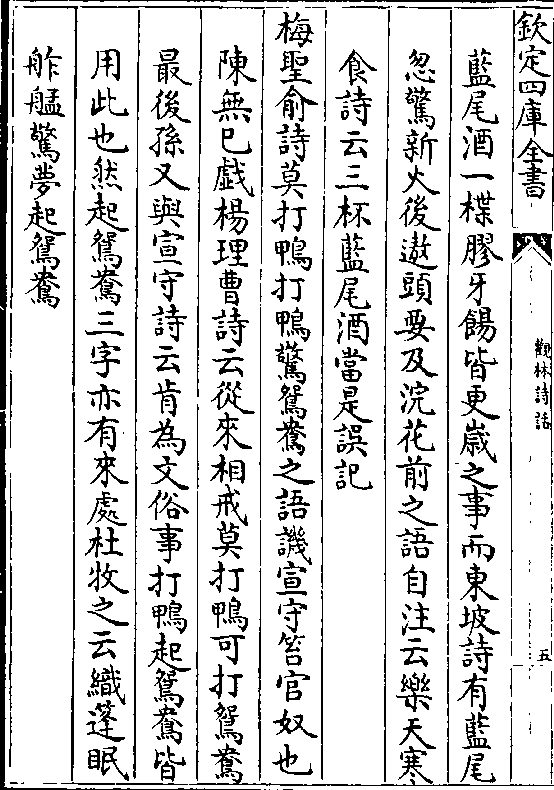 欽定四庫全書
觀林詩話
五
藍尾酒一楪膠牙餳皆更嵗之事而東坡詩有藍尾
忽驚新火後遨頭要及浣花前之語自注云樂天寒
食詩云三杯藍尾酒當是誤記
梅聖俞詩莫打鴨打鴨驚鴛鴦之語譏宣守笞官奴也
陳無已戯楊理曹詩云從來相戒莫打鴨可打鴛鴦
最後孫又與宣守詩云肯為文俗事打鴨起鴛鴦皆
用此也然起鴛鴦三字亦有來處杜牧之云織蓬眠
舴艋驚夢起鴛鴦